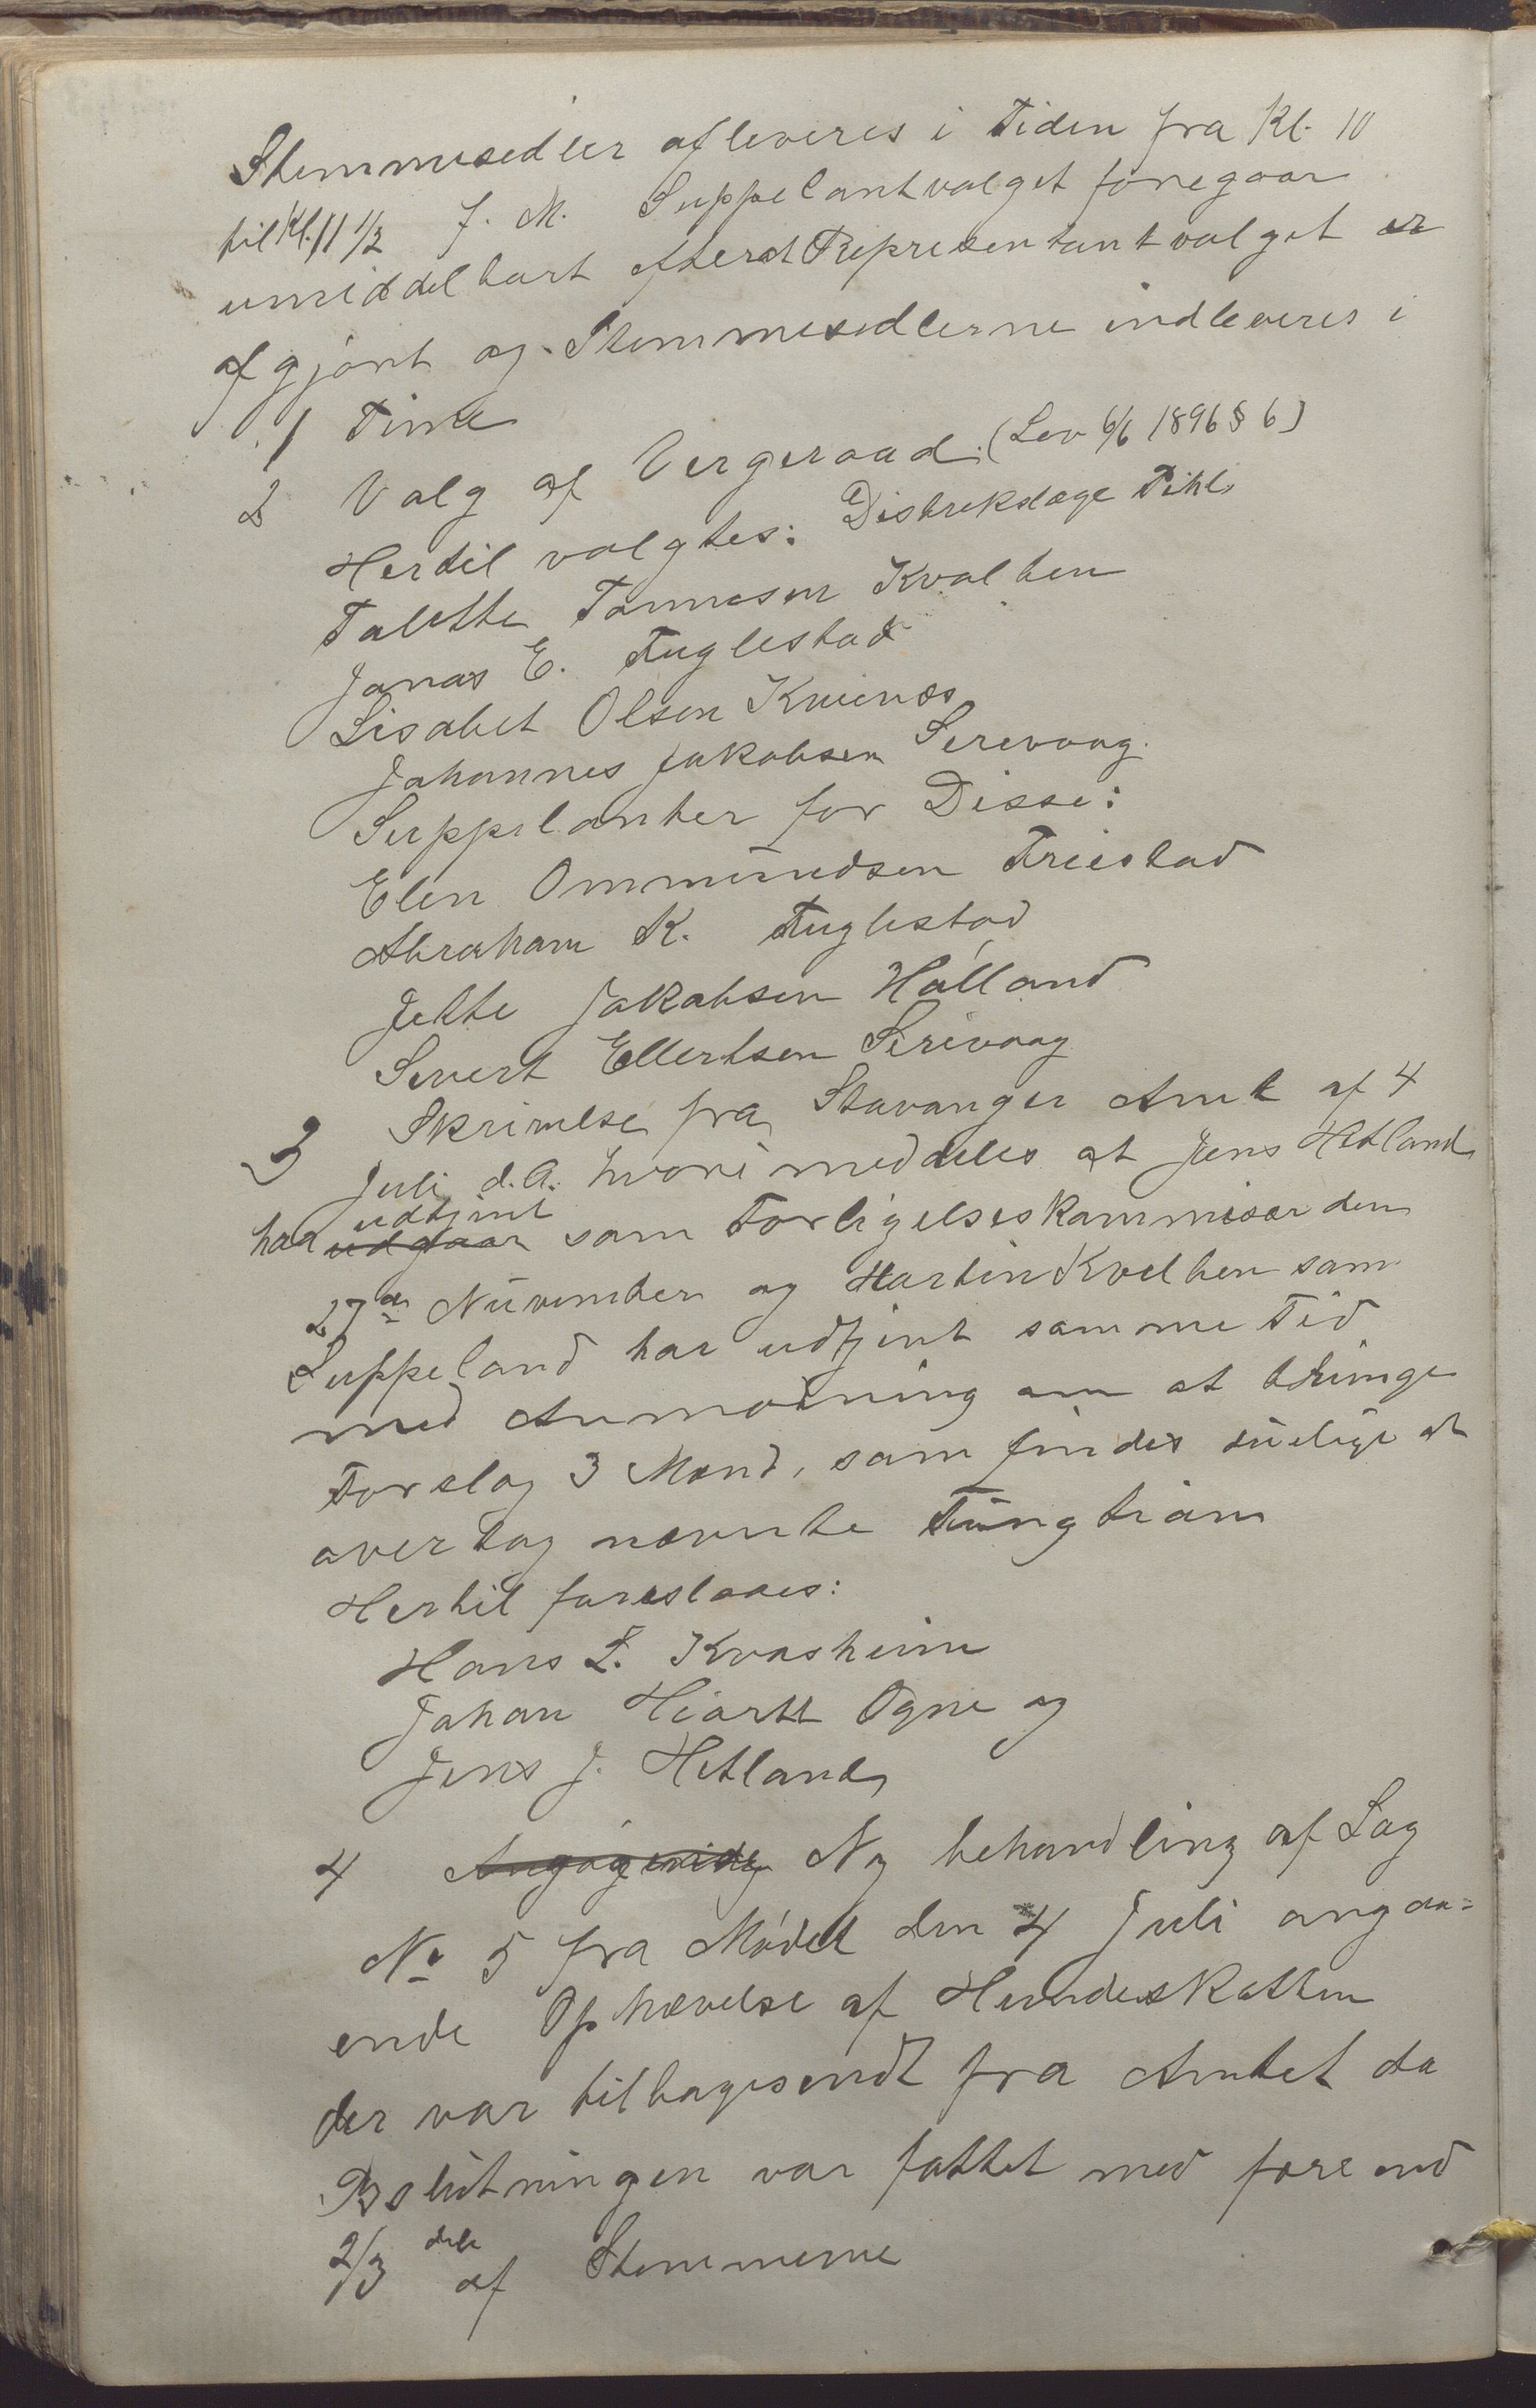 Stemmesedler afleveres i Tiden fra Kl. 10
til Kl. 11 1/2 f. M. Suppelantvalget foregaar
umiddelbart efterat Representantvalget er
afgjort og Stemmesedlerne indleveres i
1 Time
2 Valg af Vergeraad. (Lov 6/6 1896 § 6)
Hertil valgtes: Distrekslæge Pihl
Talette Tønnesen Kvalben
Jonas E. Fuglestad
Lisabet Olsen
Johannes Jakobsen Serevaag
Suppelanter for Disse:
Elen Ommundsen Friestad
Abraham K. Fuglestad
Jette Jakobsen Hølland
Severt Ellertsen Serivaag
3 Skrivelse fra Stavanger Amt af 4
Juli d.A. hvori meddeles at Jens Hetland
har udgaar udtjent som Forligelseskommisær den
27de November og Martin Kvalben som
Suppeland har udtjent samme Tid
med Anmodning om at bringe
Forslag 3 Mænd, som findes duelige at
overtag nævnte Fungtion
Hertil foreslaaes:
Hans L. Kvasheim
Johan Hiorth Ogne og
Jens J. Hetland
4 Ny behandling af Sag
No 5 fra Mødet den 4 Juli angaa=
ende Ophævelse af Hundeskatten
der var tilbagesendt fra Amtet da
Bslutningen var fattet med føre end
2/3 dele af Stemmerne